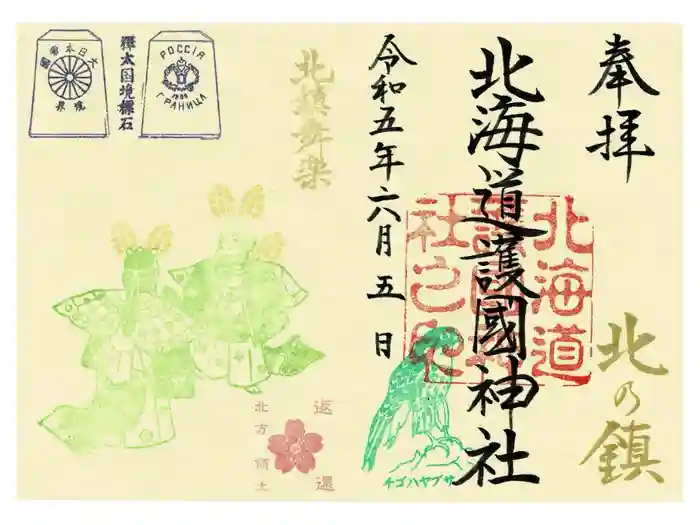 奉拝
北の鎮
北海道護國神社
北海道護國神社之印
チゴハヤブサ
令和五年六月五日
北鎮舞楽
返還
北方領土
РОССІЯ
1906
ГРАНИЦА
樺太国境標石
大日本帝國
境界